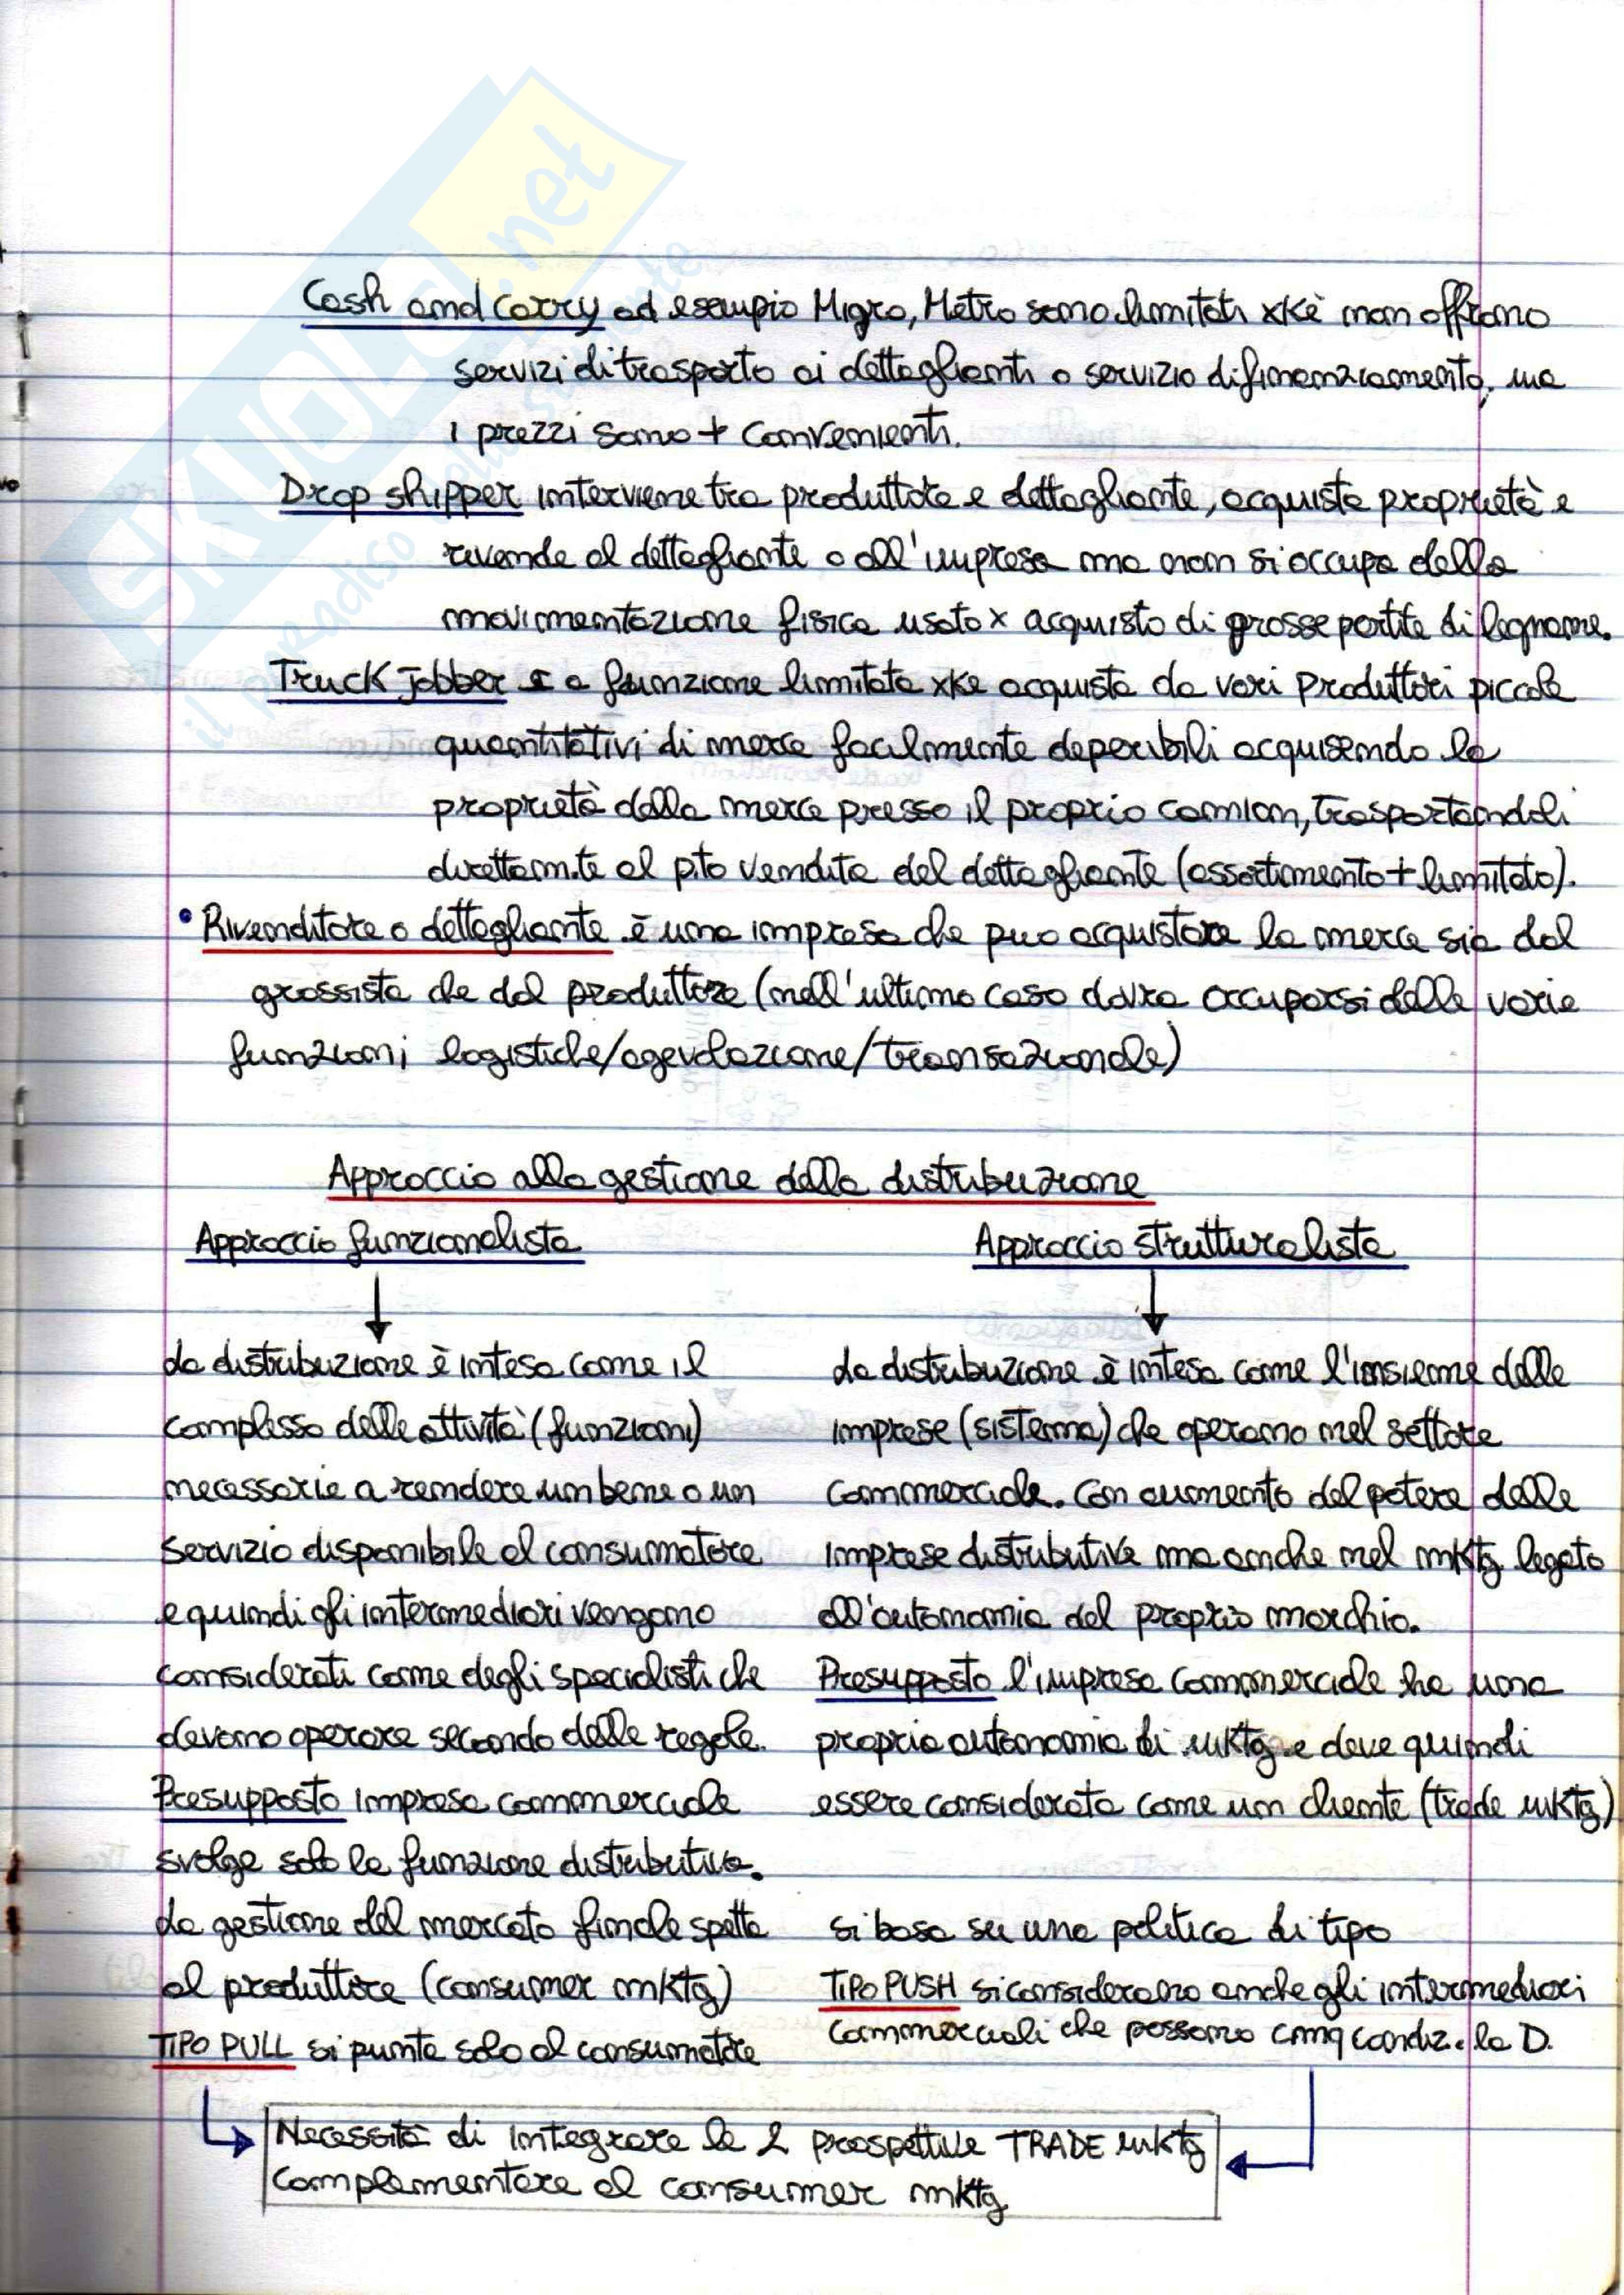 SKUOLA.net
il paradiso dello studente
Cash and Carry ad esempio Migro, Metro sono limitati xKè non offrono
servizi di trasporto ai dettaglianti o servizio di finanziamento, ma
i prezzi sono + convenienti.
Drop shipper interviene tra produttore e dettagliante, acquista proprietà e
rivende al dettagliante o all'impresa ma non si occupa della
movimentazione fisica usato x acquisto di grosse partite di legname.
Truck jobber è a funzione limitata xKe acquista da vari produttori piccole
quantitàtivi di merce facilmente deperibili acquisendo la
proprietà della merce presso il proprio camion, trasportandoli
direttam.te al p.to vendita del dettagliante (assortimento + limitato).
• Rivenditore o dettagliante è una impresa che puo acquistare la merce sia dal
grossista che dal produttore (nell'ultimo caso dovrà occuparsi delle varie
funzioni logistiche/agevolazione/transazionale)
Approccio alla gestione della distribuzione
Approccio funzionalista
La distribuzione è intesa come il
complesso delle attività (funzioni)
necessarie a rendere un bene o un
servizio disponibile al consumatore
e quindi gli intermediari vengono
considerati come degli specialisti che
devono operare secondo delle regole.
Presupposto impresa commerciale
svolge solo la funzione distributiva.
La gestione del mercato finale spetta
al produttore (consumer mKtg)
TIPO PULL si punta solo al consumatore
Approccio strutturalista
La distribuzione è intesa come l'insieme delle
imprese (sistema) che operano nel settore
commerciale. Con aumento del potere delle
imprese distributive ma anche nel mKtg legato
all'autonomia del proprio marchio.
Presupposto l'impresa commerciale ha una
propria autonomia di mKtg e deve quindi
essere considerata come un cliente (trade mKtg)
si basa su una politica di tipo
TIPO PUSH si considerano anche gli intermediari
commerciali che possono cmq condiz. la D.
Necessità di integrare le 2 prospettive TRADE mKtg
complementare al consumer mKtg